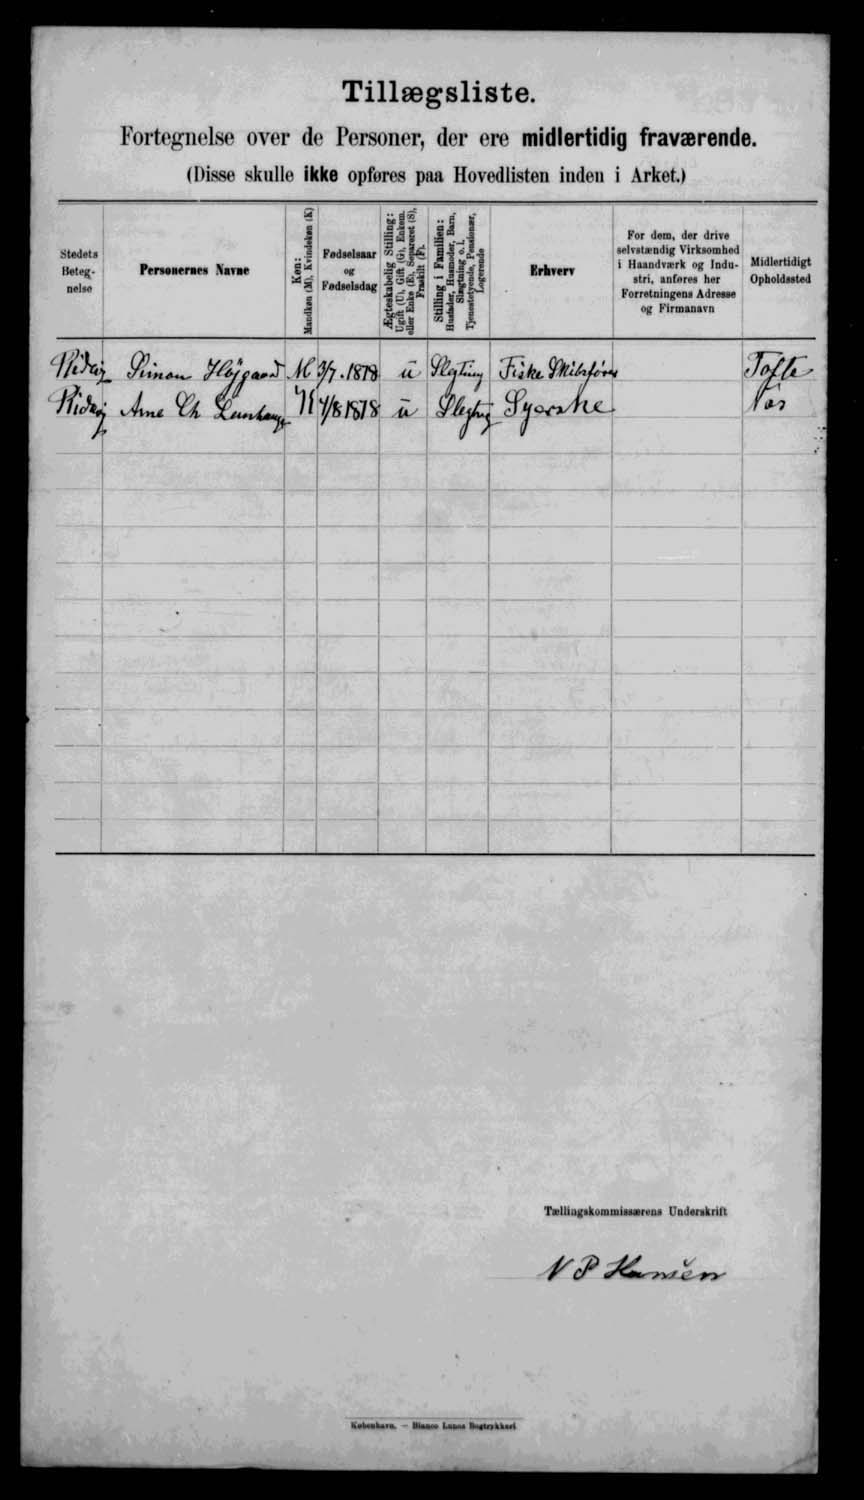 Tillægsliste.
Fortegnelse over de Personer, der ere midlertidig fraværende.
(Disse skulle ikke opføres paa Hovedlisten inden i Arket.)
Stedets Beteg-
nelse
Personernes Navne
Køn:
Mandkøn (M), Kvindekøn (K)
Fødselsaar
og
Fødselsdag
Ægteskabelig Stilling:
Ugift (U), Gift (G), Enkem.
eller Enke (E), Separeret (S),
Fraskilt (F).
Stilling i Familien:
Husfader, Husmoder, Barn,
Slægtning o. l.
Tjenestetyende, Pensionær,
Logerende
Erhverv
For dem, der drive
selvstændig Virksomhed
i Haandværk og Indu-
stri, anføres her
Forretningens Adresse
og Firmanavn
Midlertidigt
Opholdssted
Simon Højgaard M 3/7 1878 u Slegtning Fiske Skibsfører Tofte
K 1878 u Syerske Nos
Tællingskommissærens Underskrift
N P Hansen
København. — Bianco Lunos Bogtrykkeri